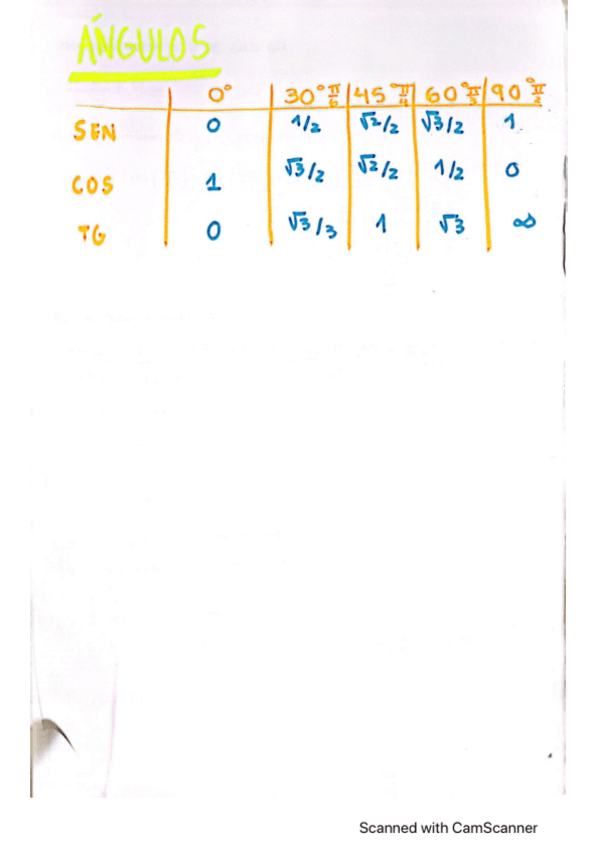 ÁNGULOS
0° 30° π/6 45° π/4 60° π/3 90° π/2
SEN 0 1/2 √2/2 √3/2 1
COS 1 √3/2 √2/2 1/2 0
TG 0 √3/3 1 √3 ∞
Scanned with CamScanner